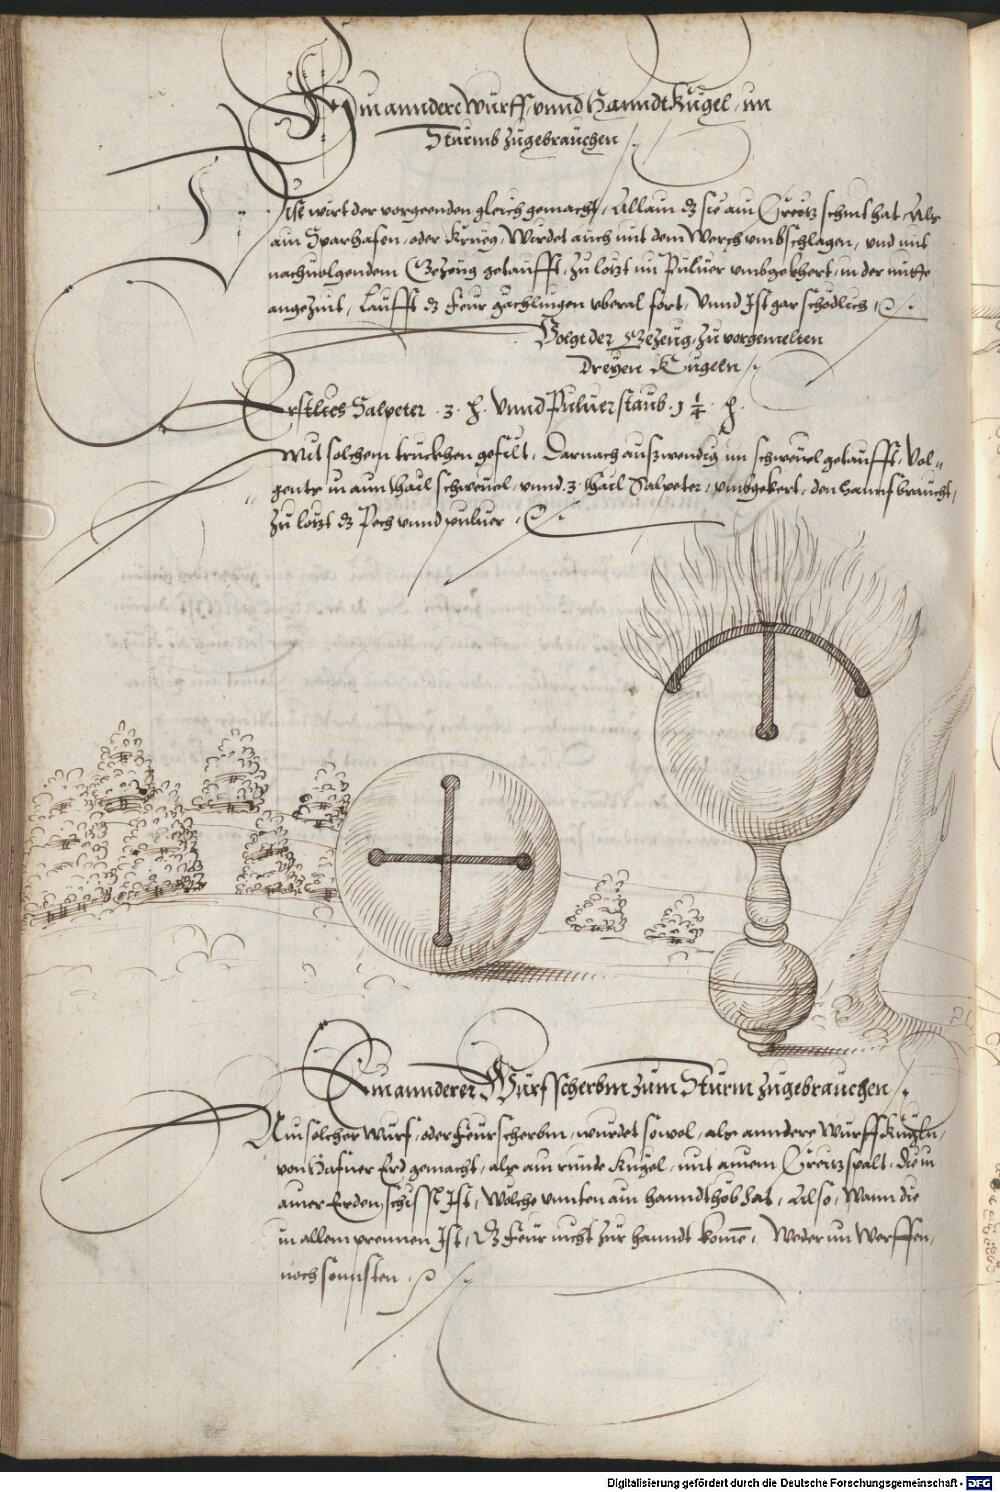 Ain anndere Wurff, vnnd Hanndt Kugel, im
Sturmb zugebrauchen
Dise wirt der vorgeenden gleich gemacht, Allain dz sie ain Creutz schnit hat Alß
ain Sparhafen, oder Krueg, Würdet auch mit dem Werch vmbschlagen, vnd mit
nachuolgendem Gezeug getaufft, zu lötzt im Puluer vmbgekhert, in der mitte
angezint, Laufft dz Feur gächlingen vberal fort, Vnnd Ist gar schödlich
Volgt der Gezeug, zu vorgemelten
Dreyen Kugeln
Erstlich Salpeter 3 ℔. Vnnd Puluerstaub 1 1/4 ℔.
Mit solchem truckhen gefilt, Darnach außwendig im schweuel getaufft, Vol-
gentz in ain thail schweuel, vnnd 3 thail Salpeter, vmbgekert, den Hanif braucht,
zu lötzt dz Pech vnnd puluer
Ain annderer Wurfscherbm zum Sturm zugebrauchen
Ain solcher wurf, oder Feurscherbm, würdet sowol, alß anndere Wurff Kugln,
von Hafner Erd gemacht, alß ain runde Kugel, mit ainem Creutzspalt, Die in
ainer Erden schissl Ist, Wölche vnnten ain hanndthöb hat, Also, Wann die
in allem prennen Ist, Dz Feur nicht zur hanndt kome, Weder im Werffen,
noch sonnsten
Digitalisierung gefördert durch die Deutsche Forschungsgemeinschaft - DFG